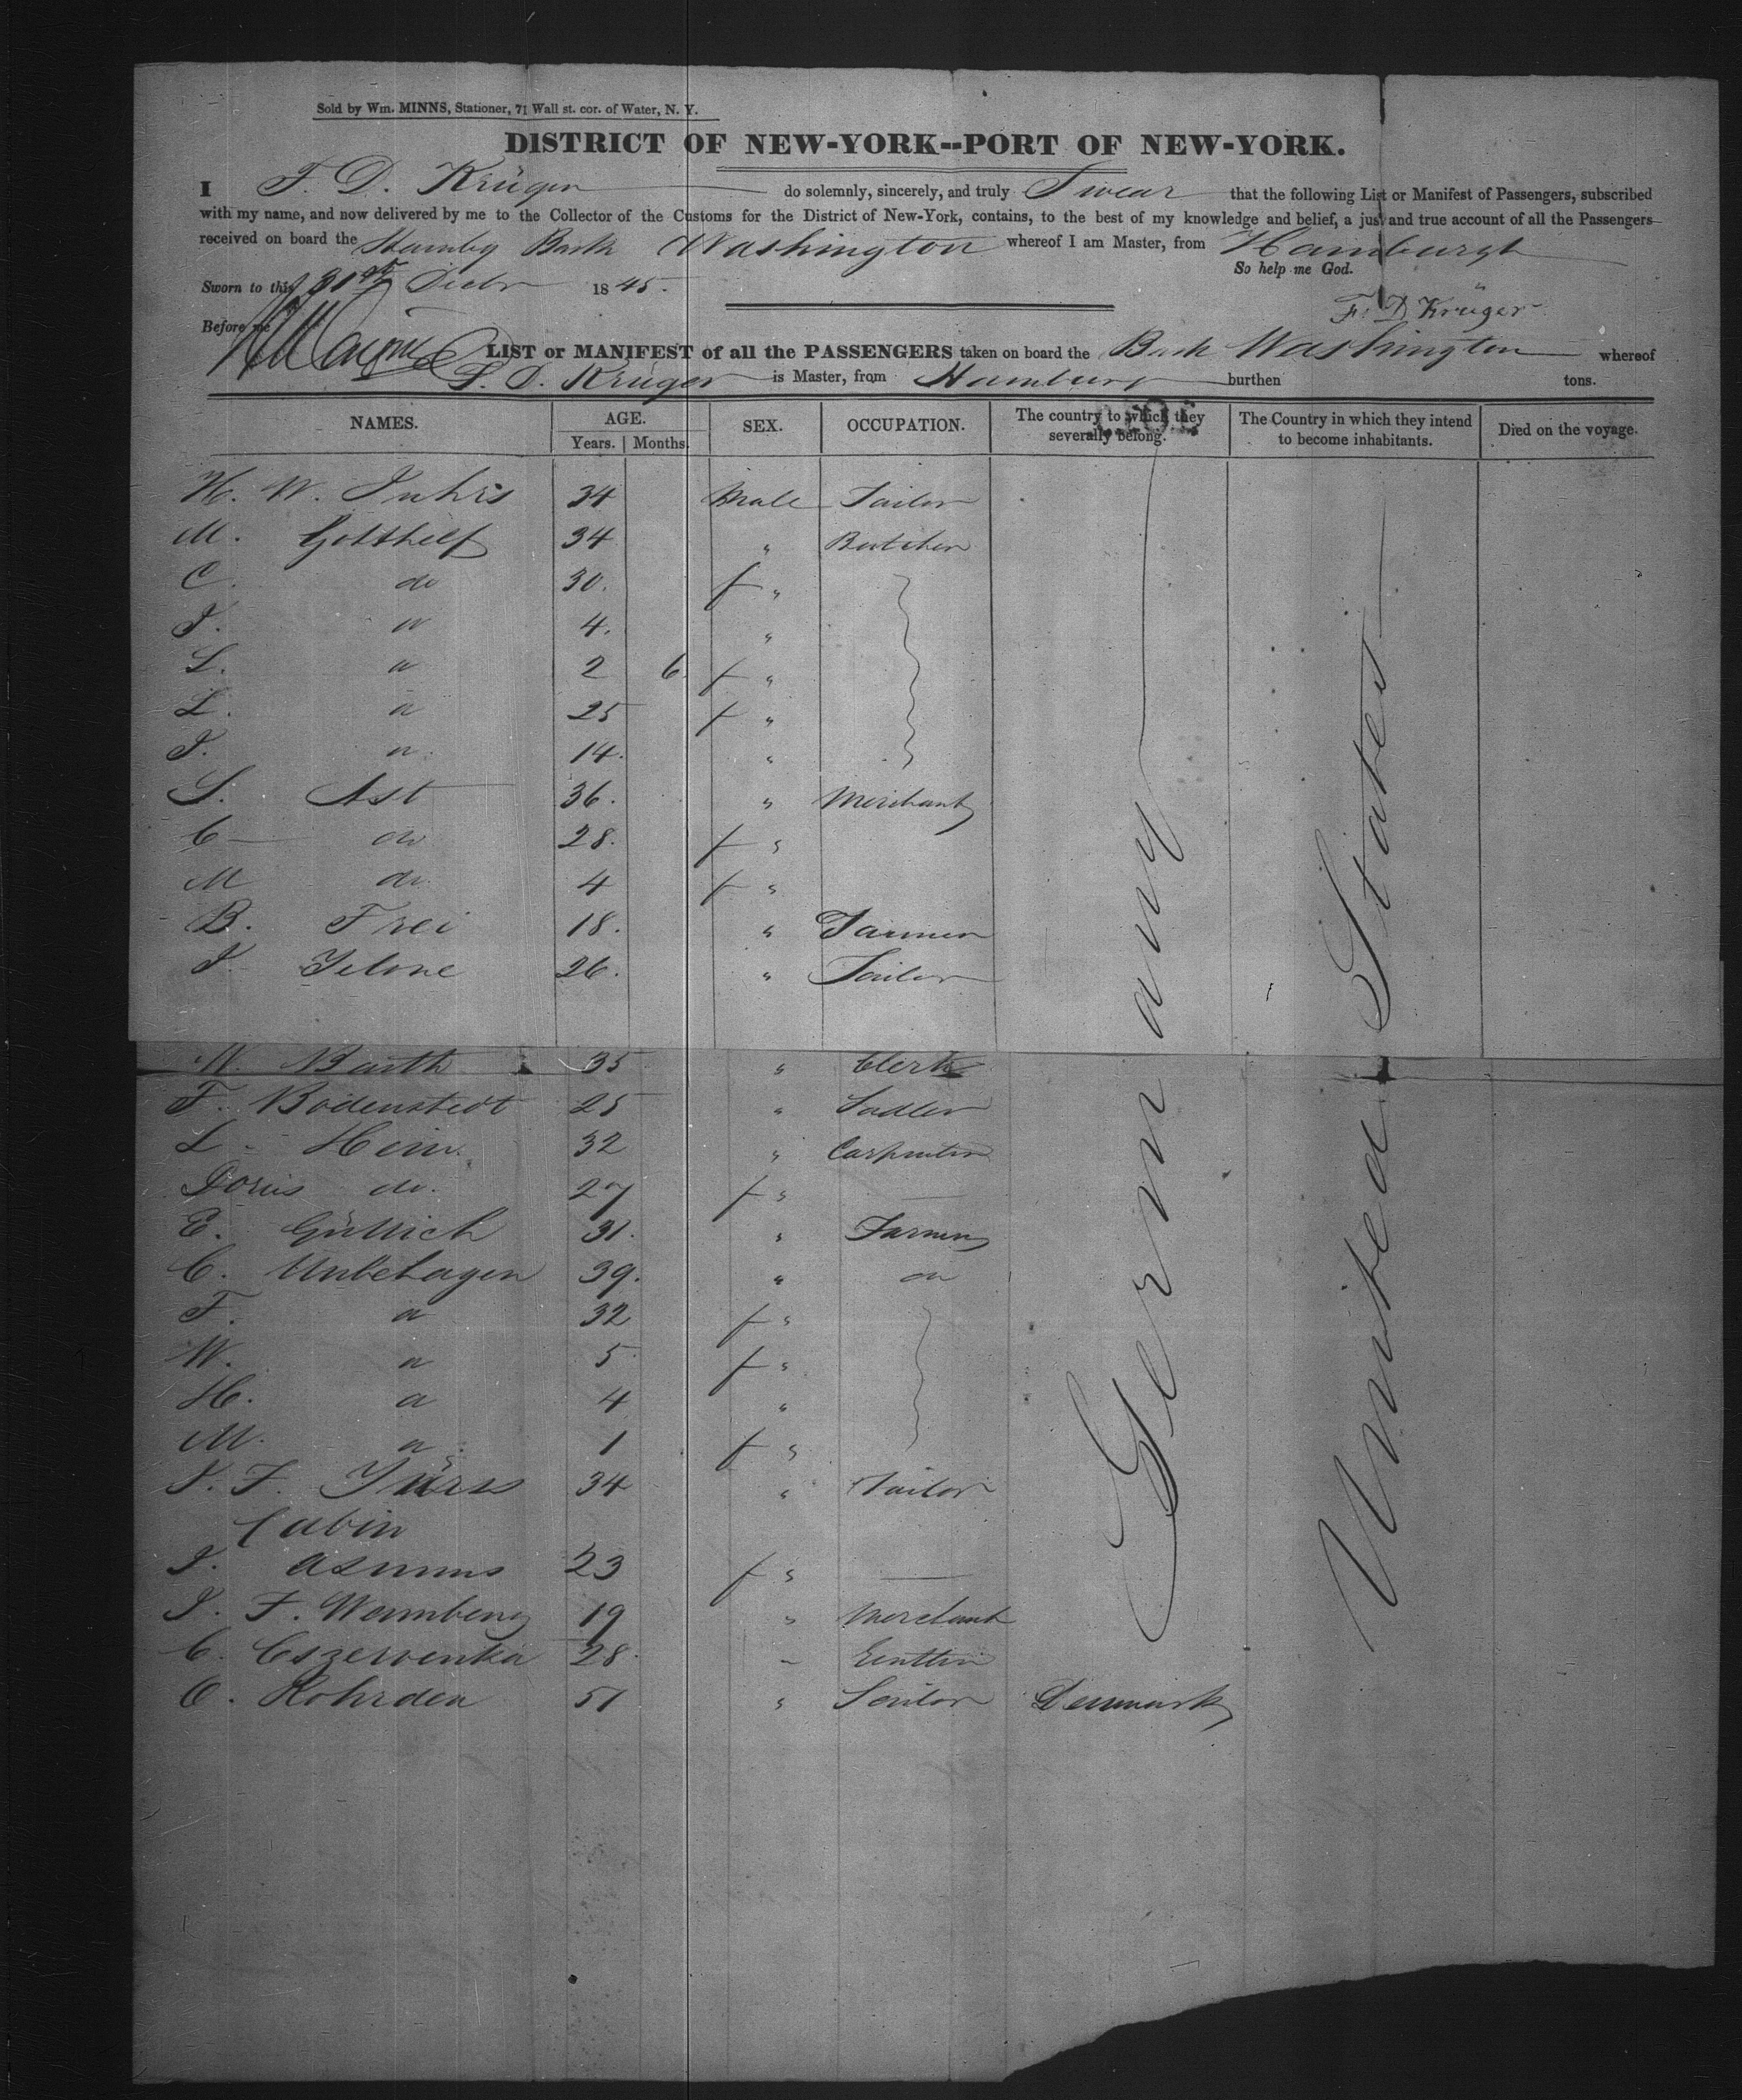 Sold by Wm. MINNS, Stationer, 71 Wall st. cor. of Water, N. Y.
DISTRICT OF NEW-YORK--PORT OF NEW-YORK.
I F. D. Krüger do solemnly, sincerely, and truly Swear that the following List or Manifest of Passengers, subscribed
with my name, and now delivered by me to the Collector of the Customs for the District of New-York, contains, to the best of my knowledge and belief, a just and true account of all the Passengers
received on board the Bark Washington whereof I am Master, from Hamburgh
So help me God.
Sworn to this 31st Decbr 1845.
F. D Krüger
Before me
LIST or MANIFEST of all the PASSENGERS taken on board the Bark Washington whereof
F. D. Krüger is Master, from Hamburg burthen tons.
NAMES. AGE. Years. Months. SEX. OCCUPATION. The country to which they severally belong. The Country in which they intend to become inhabitants. Died on the voyage.
H. W. 34 Male Tailor
M. Gotthelf 34 " Butcher
C. do 30. f "
J. " 4. "
L. " 2 6 f "
L. " 25 f "
J. " 14. "
S. Ast 36. " Merchant
C do 28. f "
M do 4 f "
B. Frei 18. " Farmer
J. 26. " Tailor
W. Barth 35 " Clerk
F. Bodenstedt 25 " Sadler
L. Hein 32 " Carpenter
Doris do. 27 f "
E. Güllich 31. " Farmer
C. Unbehagen 39. " do
F. " 32 f "
W. " 5 f "
H. " 4 "
M. " 1 f "
J. F. Jürs 34 " Tailor
Cabin
J. Asmus 23 f "
J. F. Wamberg 19 " Merchant
C. Cszerwenka 28.
C. Rohrden 51 " Sailor Denmark
Germany
United States